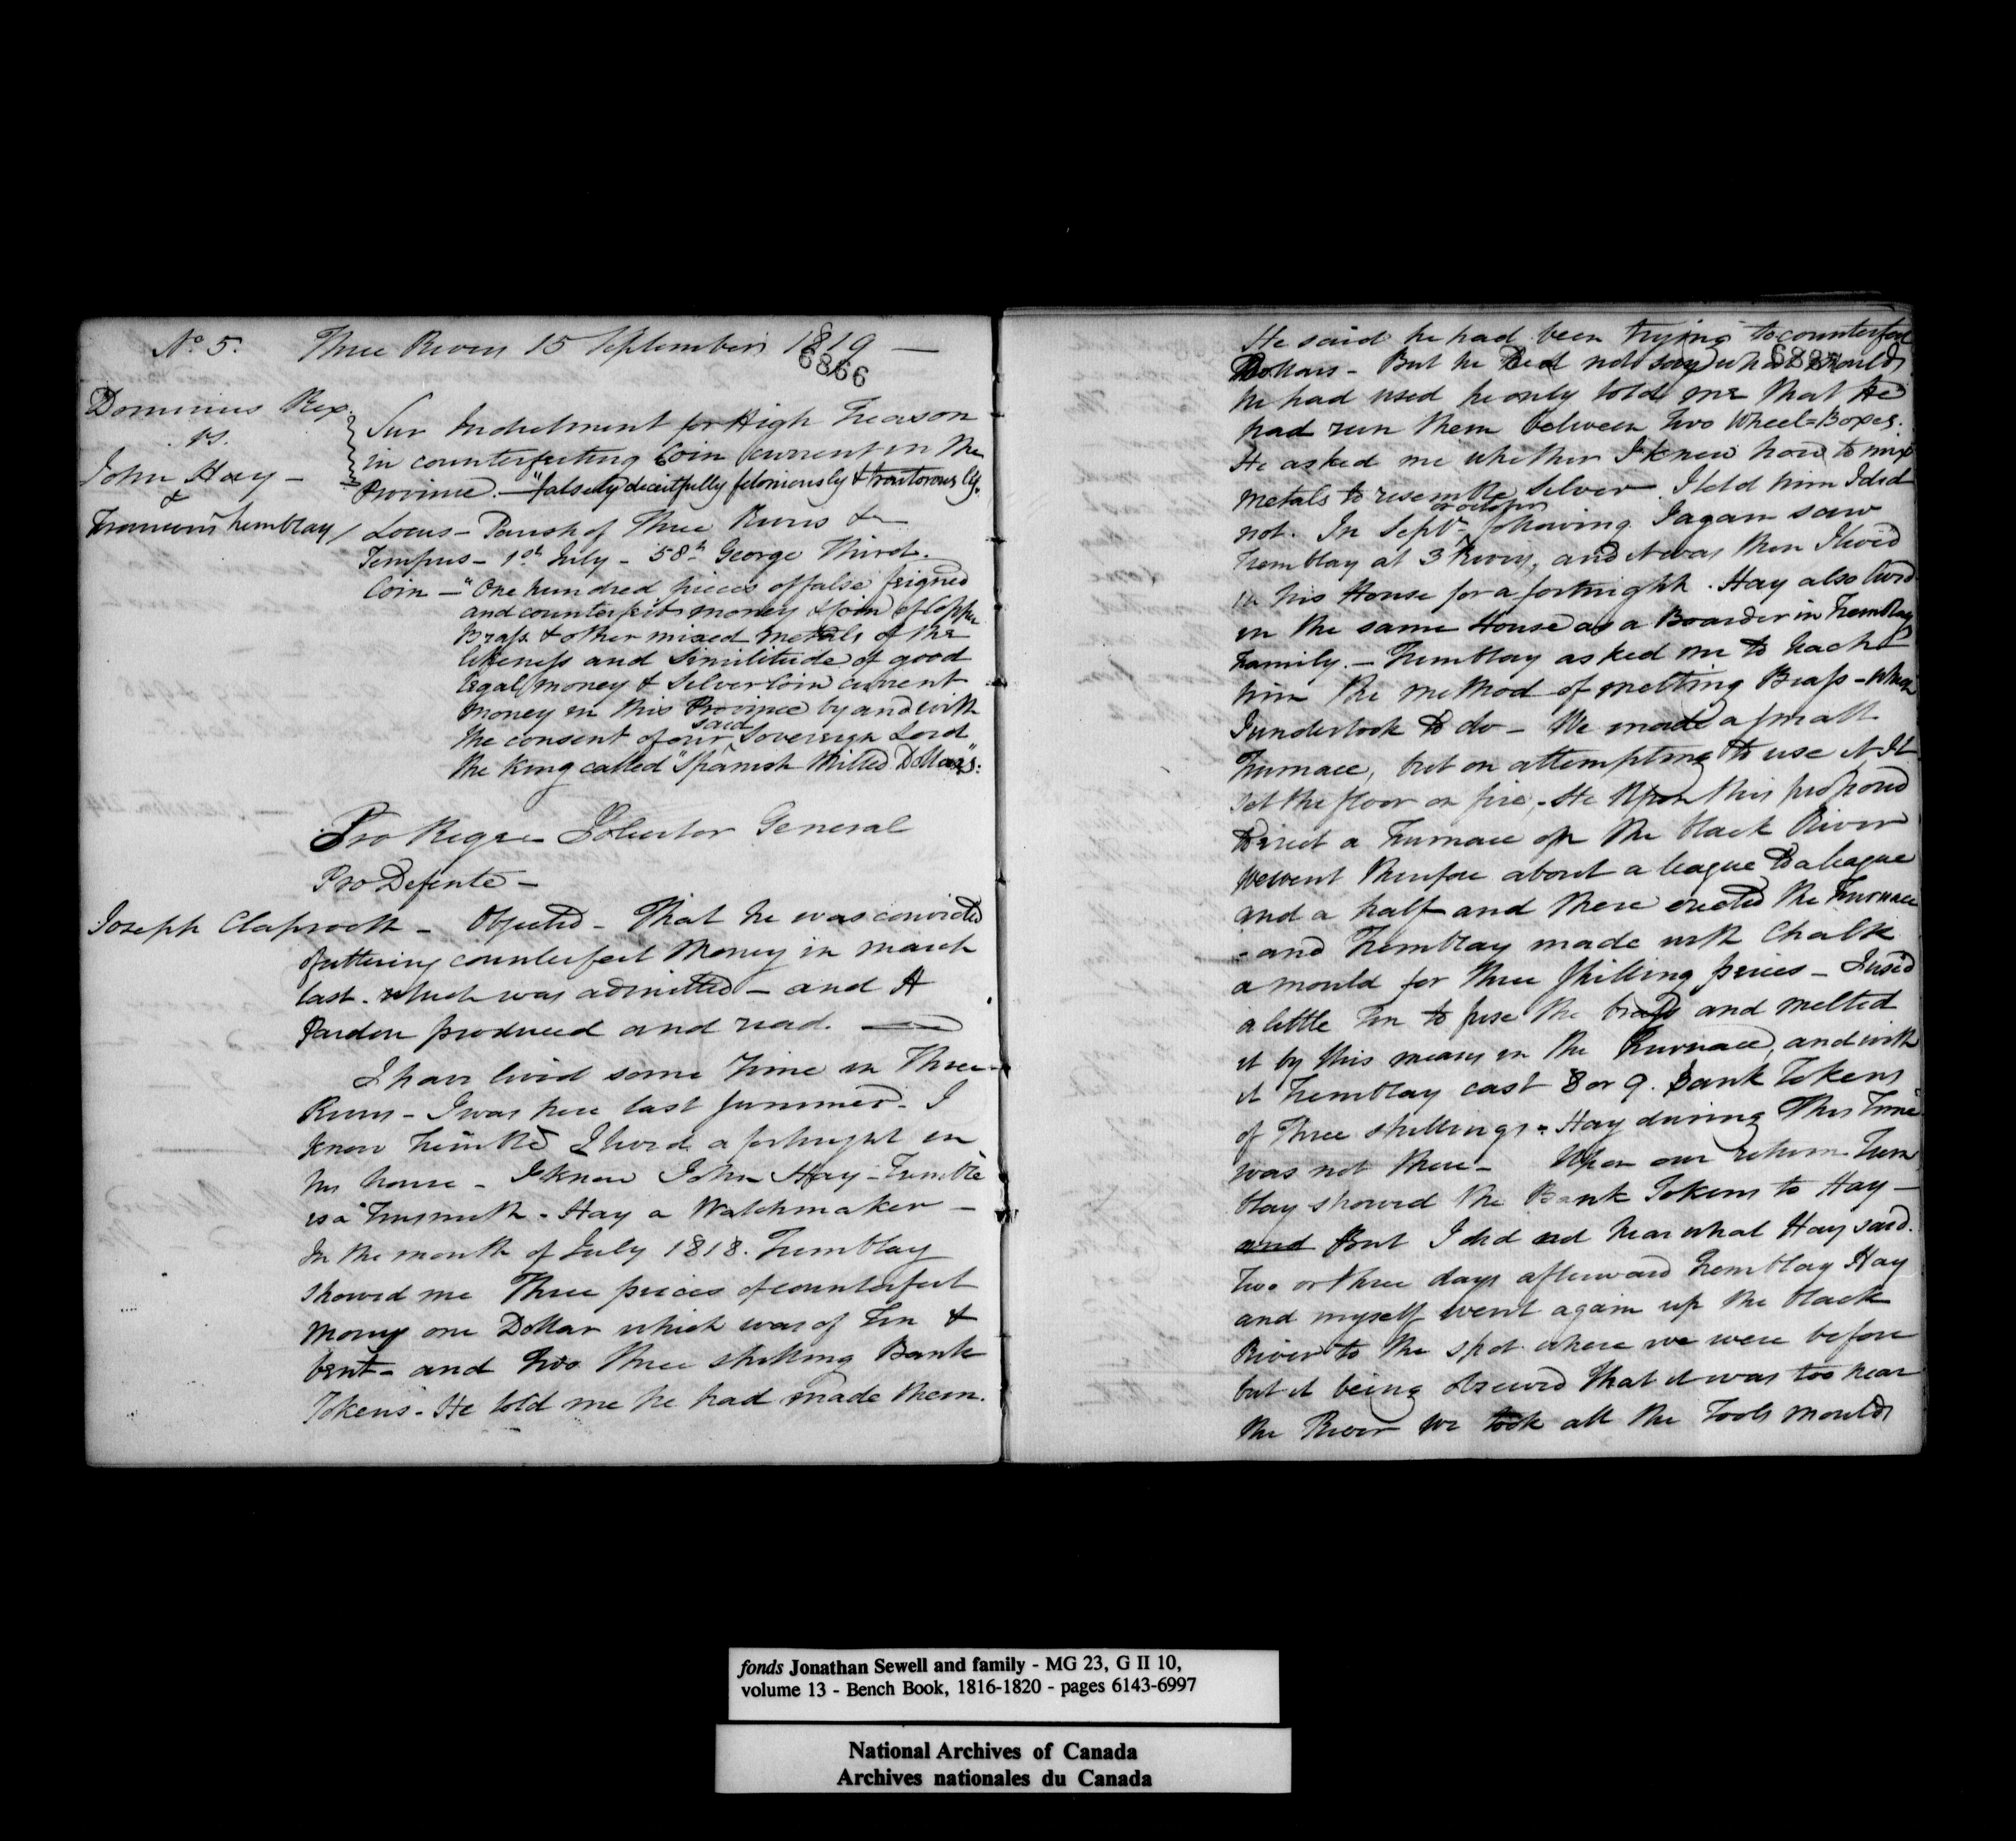 No. 5. Three Rivers 15 September 1819 —
6866
Dominus Rex.
vs.
John Hay —
&
Francois Tremblay
Sur Indictment for High Treason
in counterfeiting Coin current in the
Province. — "falsely deceitfully feloniously & traitorously".
Locus — Parish of Three Rivers &
Tempus — 1st July — 58th George Third.
Coin — "One hundred pieces of false feigned
and counterfeit money & Coin of Copper
Brass & other mixed metals of the
likeness and Similitude of good
legal money & Silver Coin current
money in this Province by and with
the consent of our said Sovereign Lord
the King called "Spanish Milled Dollars":
Pro Rege — Solicitor General
Pro Defente —
Joseph Claprooth — Objected — That he was convicted
of uttering counterfeit Money in march
last. which was admitted — and A
Pardon produced and read. —
I have lived some Time in Three
Rivers — I was here last Summer. I
know Tremblé I lived a fortnight in
his house — I know John Hay — Tremblé
is a Tinsmith. Hay a Watchmaker —
In the month of July 1818. Tremblay
showed me Three pieces of counterfeit
Money one Dollar which was of Tin &
bent — and two three shilling Bank
Tokens — He told me he had made them.
He said he had been trying to counterfeit
Dollars — But he did not say what moulds
he had used he only told me that He
had run them between two Wheel=Boxes.
He asked me whether I knew how to mix
metals to resemble Silver. I told him I did
not. In Septr or October following I again saw
Tremblay at 3 Rivers, and it was then I lived
in his House for a fortnight. Hay also lived
in the same House as a Boarder in Tremblay's
Family. — Tremblay asked me to teach
him the method of melting Brass — which
I undertook to do — We made a small
Furnace, but on attempting to use it It
set the floor on fire. He Upon this proposed
to erect a Furnace up the black River
we went therefore about a league to a league
and a half and there erected the Furnace
— and Tremblay made with Chalk
a mould for three Shilling pieces — I used
a little Tin to fuse the brass and melted
it by this means in the Furnace, and with
it Tremblay cast 8 or 9. Bank Tokens
of Three shillings. Hay during This Time
was not there — Upon our return Trem
blay showed the Bank Tokens to Hay —
and But I did not hear what Hay said.
Two or three days afterward Tremblay Hay
and myself went again up the black
River to the spot where we were before
but it being observed that it was too near
the River we took all the Tools moulds
fonds Jonathan Sewell and family - MG 23, G II 10,
volume 13 - Bench Book, 1816-1820 - pages 6143-6997
National Archives of Canada
Archives nationales du Canada